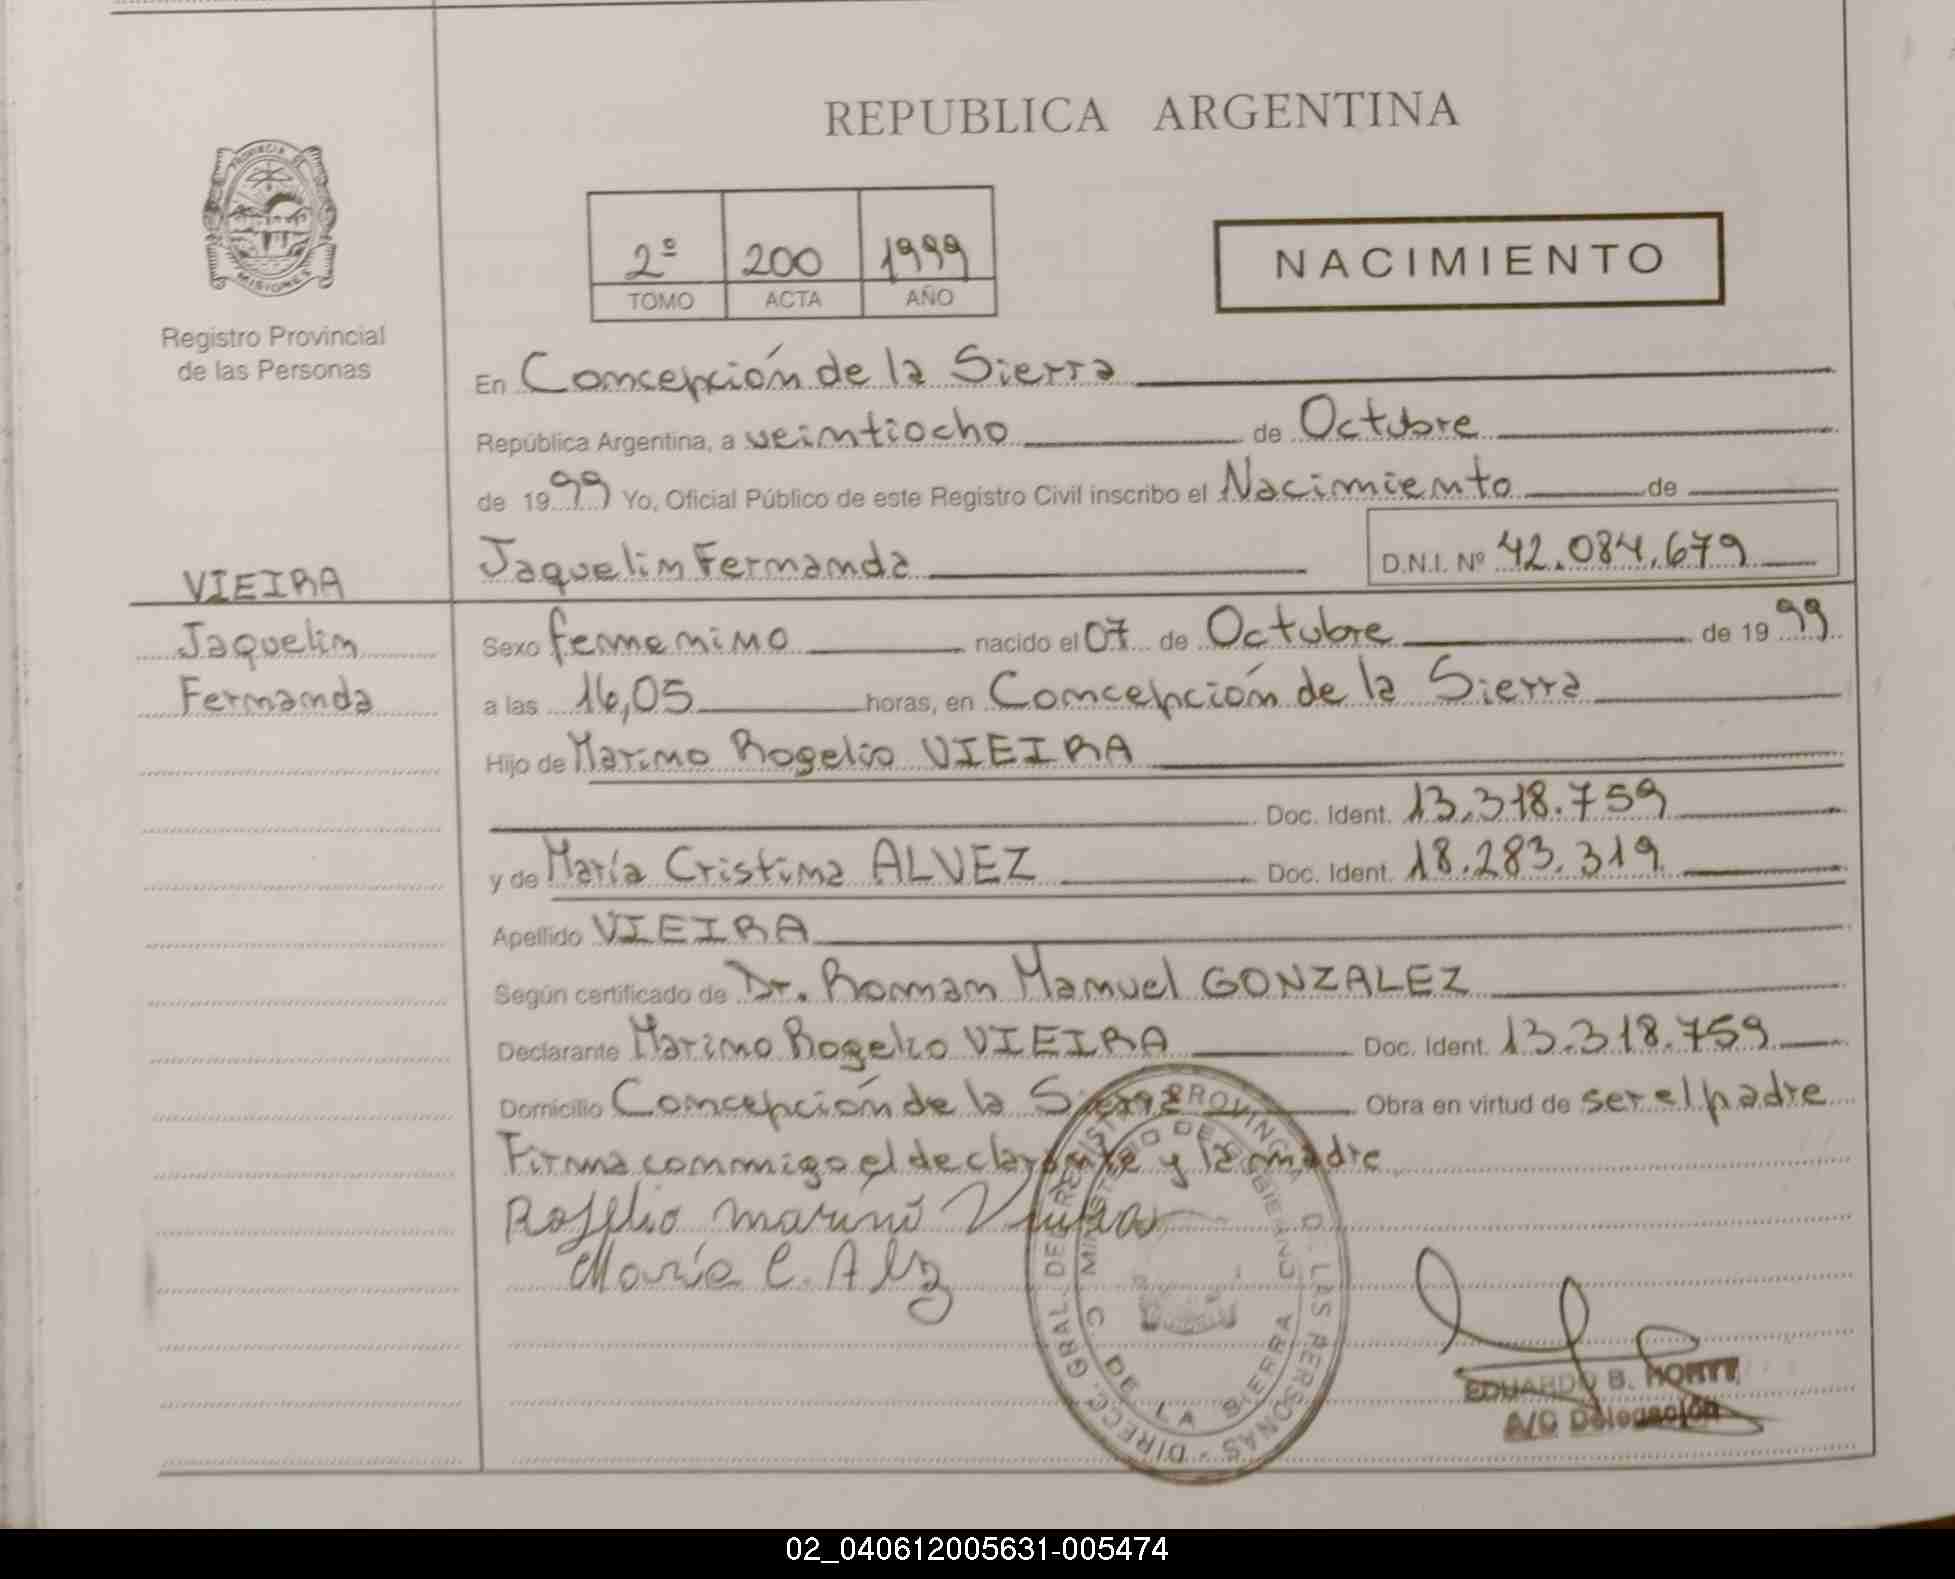 REPUBLICA ARGENTINA
PROVINCIA DE MISIONES
2º 200 1999
TOMO ACTA AÑO
NACIMIENTO
Registro Provincial
de las Personas
En Concepción de la Sierra
República Argentina, a veintiocho de Octubre
de 1999 Yo, Oficial Público de este Registro Civil inscribo el Nacimiento de
Jaquelin Fernanda D.N.I. Nº 42.084.679
VIEIRA
Jaquelin
Fernanda
Sexo femenino nacido el 07 de Octubre de 1999
a las 16,05 horas, en Concepción de la Sierra
Hijo de Marino Rogelio VIEIRA
Doc. Ident. 13.318.759
y de María Cristina ALVEZ Doc. Ident. 18.283.319
Apellido VIEIRA
Según certificado de Dr. Roman Manuel GONZALEZ
Declarante Marino Rogelio VIEIRA Doc. Ident. 13.318.759
Domicilio Concepción de la Sierra Obra en virtud de ser el padre
Firma conmigo el declarante y la madre
Rogelio Marino Vieira
María C. Alvz
DIRECC. GRAL. DEL REGISTRO PROVINCIAL DE LAS PERSONAS
MINISTERIO DE GOBIERNO
C. DE LA SIERRA
EDUARDO B.
A/C Delegación
02_040612005631-005474